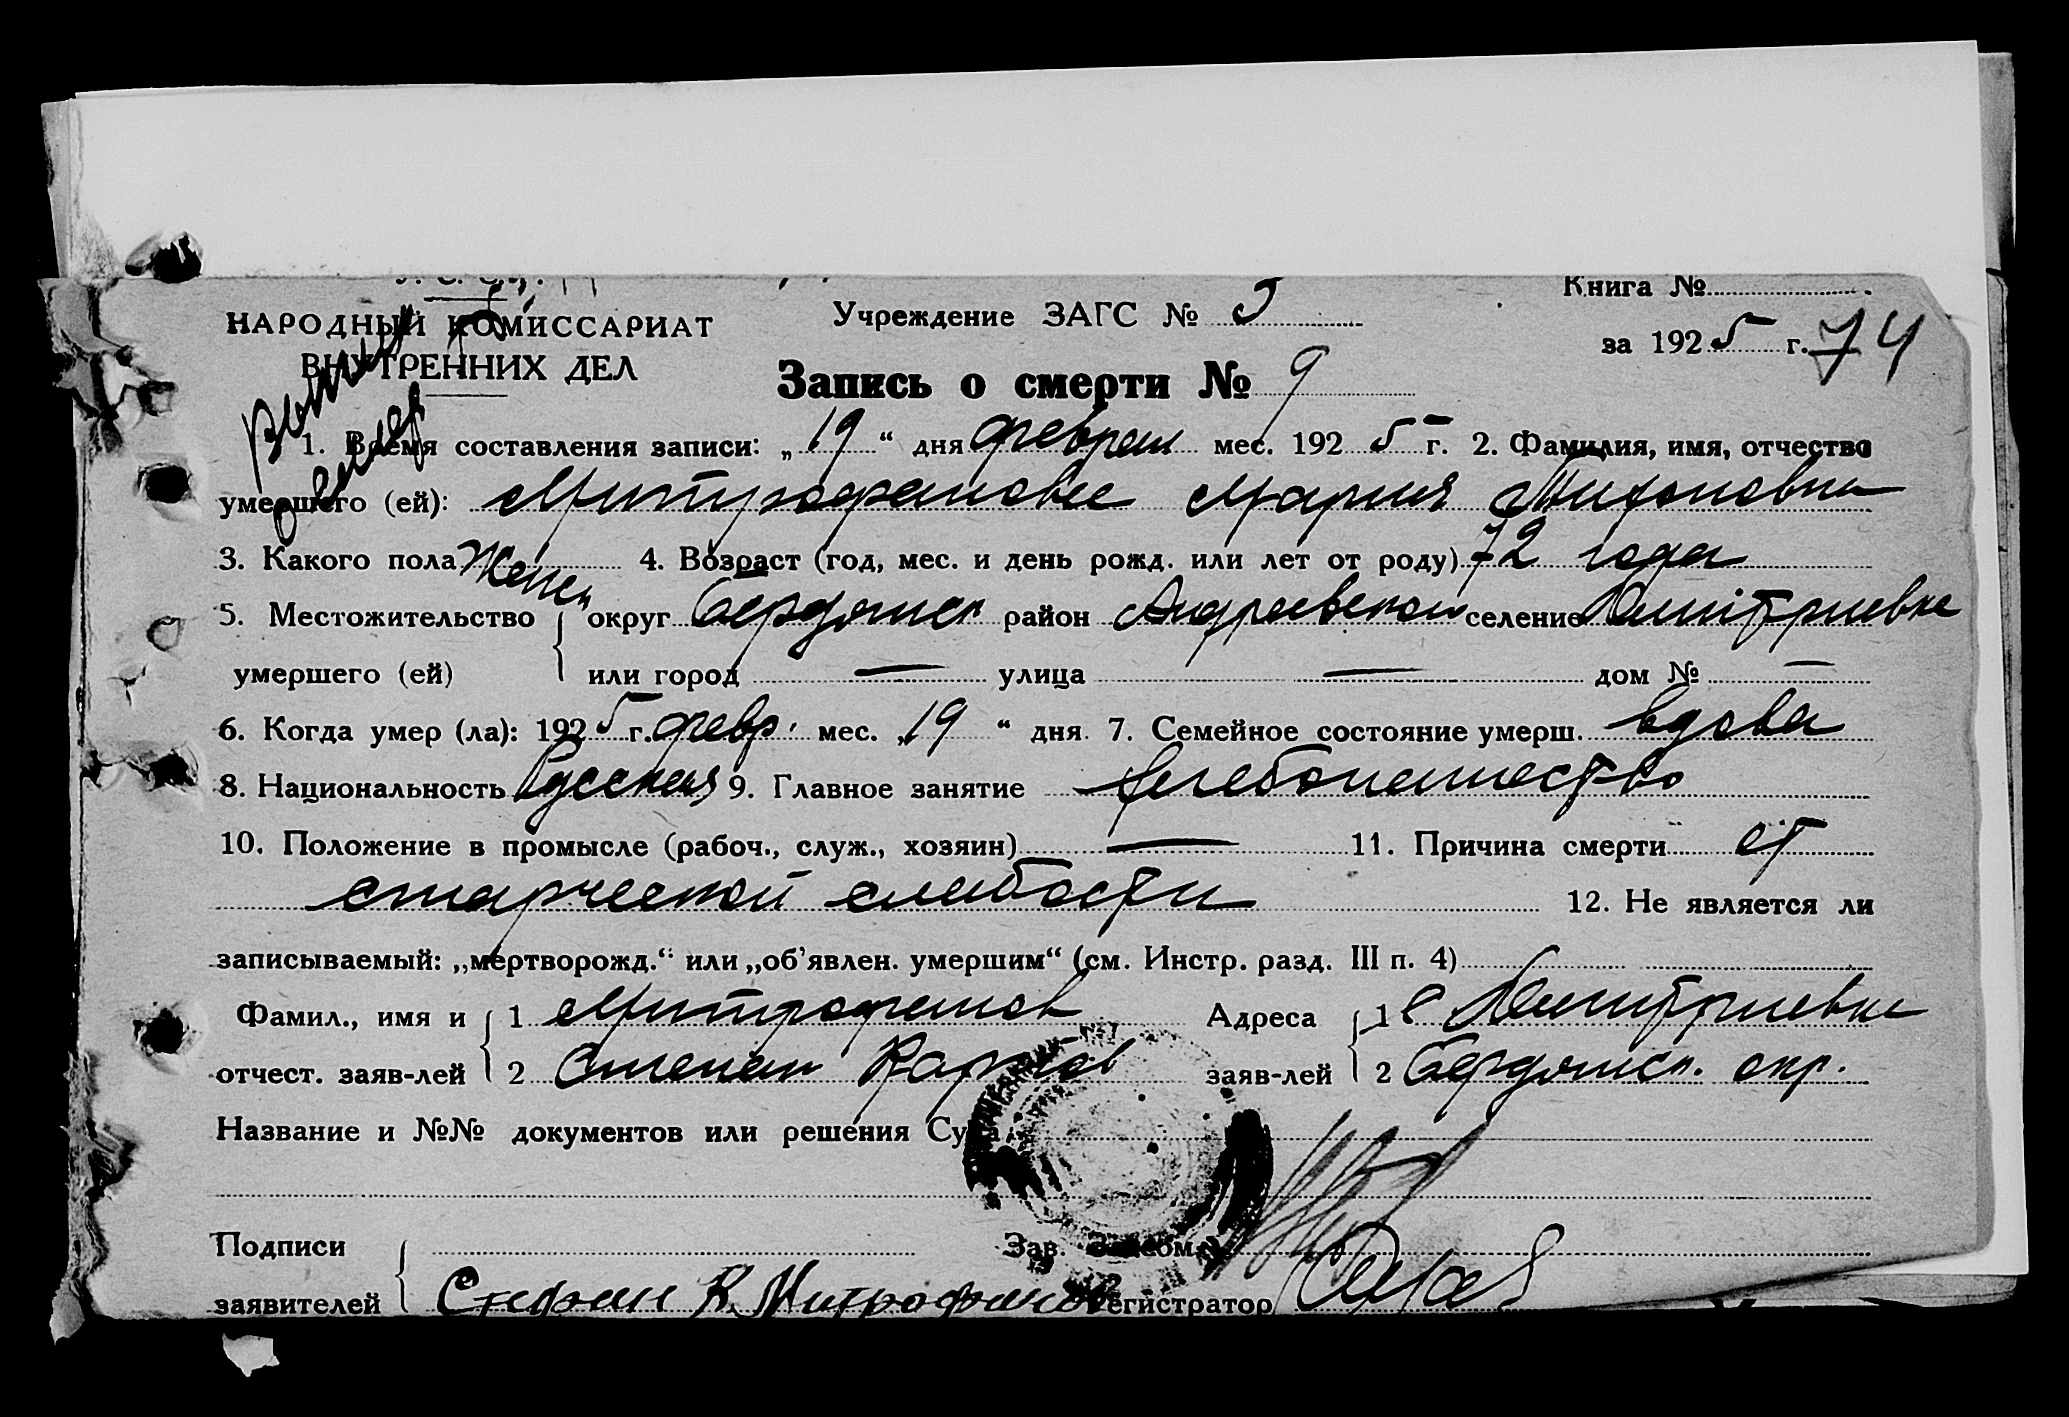 Книга №
НАРОДНЫЙ КОМИССАРИАТ
ВНУТРЕННИХ ДЕЛ
Учреждение ЗАГС № 3
за 1925 г. 74
Запись о смерти № 9
1. Время составления записи: „19“ дня февраля мес. 1925 г. 2. Фамилия, имя, отчество
умершего (ей): Митрофанова Мария
3. Какого пола Женск 4. Возраст (год, мес. и день рожд. или лет от роду) 72 года
5. Местожительство округ Бердянск район Андреевский селение Дмитриевка
умершего (ей) или город — улица — дом № —
6. Когда умер (ла): 1925 г. февр. мес. „19“ дня. 7. Семейное состояние умерш. вдова
8. Национальность Русская 9. Главное занятие хлебопашество
10. Положение в промысле (рабоч., служ., хозяин) — 11. Причина смерти от
старческой слабости 12. Не является ли
записываемый: „мертворожд.“ или „об’явлен. умершим“ (см. Инстр. разд. III п. 4)
Фамил., имя и 1 Митрофанов Адреса 1 с Дмитриевка
отчест. заяв-лей 2 Степан Карпов заяв-лей 2 Бердянск. окр.
Название и №№ документов или решения Суда
Подписи Зав.
заявителей Стефан К. Митрофанов Регистратор